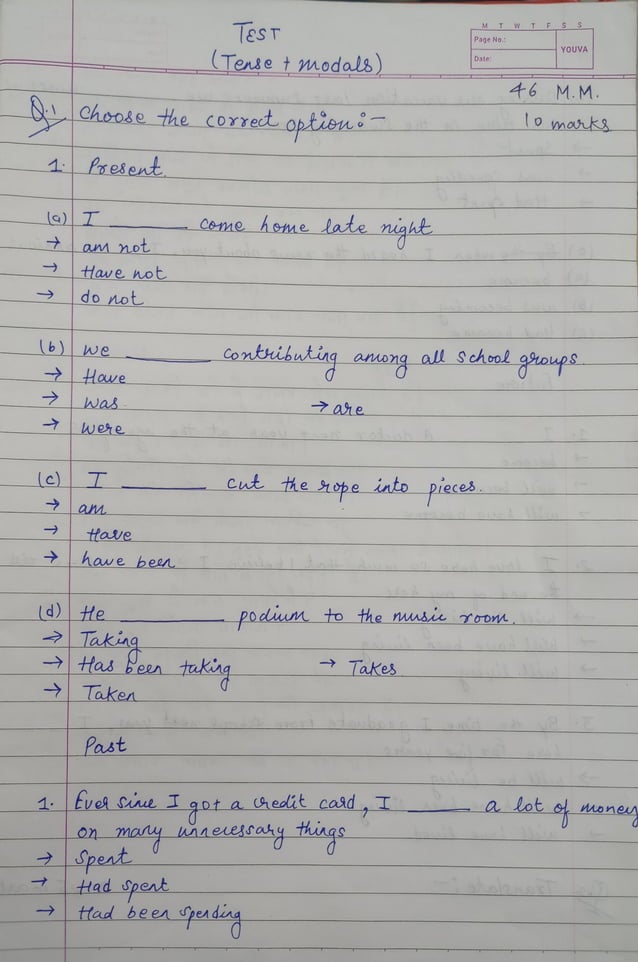 TEST
(Tense + modals)
M T W T F S S
Page No.:
Date:
YOUVA
46 M.M.
Q.1 Choose the correct option:-
10 marks
1. Present.
(a) I ______ come home late night
→ am not
→ Have not
→ do not
(b) we ______ contributing among all school groups.
→ Have
→ was. → are
→ were
(c) I ______ cut the rope into pieces.
→ am
→ Have
→ have been
(d) He ______ podium to the music room.
→ Taking
→ Has been taking → Takes
→ Taken
Past
1. Ever since I got a credit card, I ______ a lot of money
on many unnecessary things
→ Spent
→ Had spent
→ Had been spending